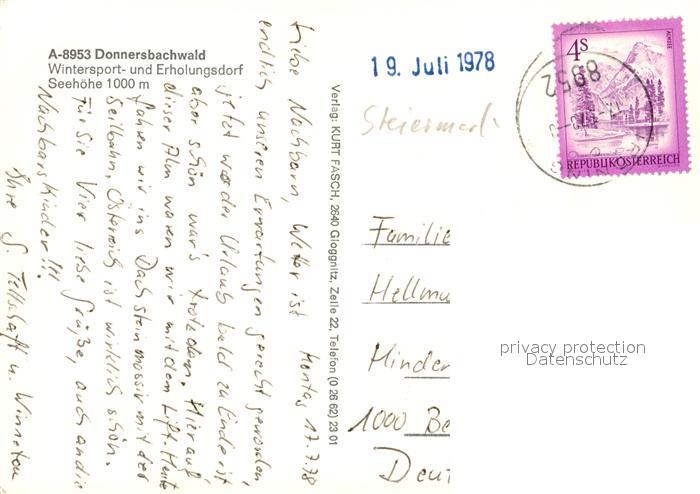 A-8953 Donnersbachwald
Wintersport- und Erholungsdorf
Seehöhe 1000 m
Montag 17.7.78
Liebe Nachbarn, Wetter ist
endlich unseren Erwartungen gerecht geworden,
jetzt wo der Urlaub bald zu Ende ist
aber schön war's trotzdem. Hier auf
dieser Alm waren wir mit dem Lift. Heute
fahren wir ins Dachsteinmassiv mit der
Seilbahn. Österreich ist wirklich schön.
Für Sie Vier liebe Grüße, auch an die
Nachbarskinder!!!
Ihre G. Tellschaft u. Winnetou
Verlag: KURT FASCH, 2640 Gloggnitz, Zeile 22, Telefon (0 26 62) 23 01
19. Juli 1978
Steiermark
4S
ALMSEE
REPUBLIK ÖSTERREICH
8952
Familie
Hellmu
Minder
1000 Be
Deut
privacy protection
Datenschutz